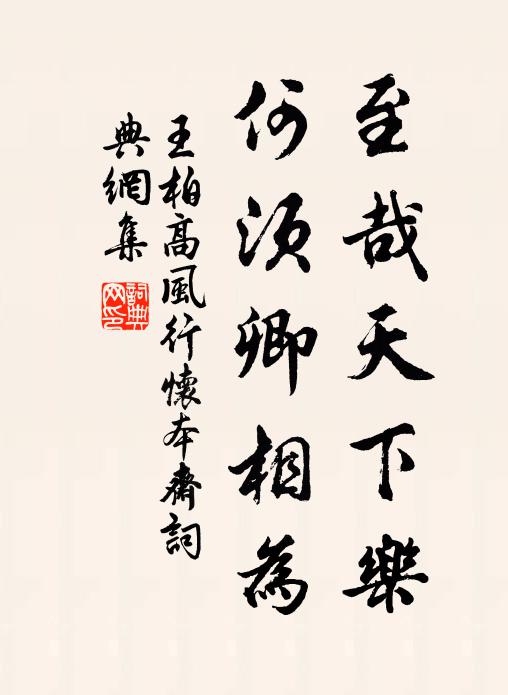 至哉天下樂
何須卿相為
王柏高風行懷本齋詞
典網集
詞典
网印